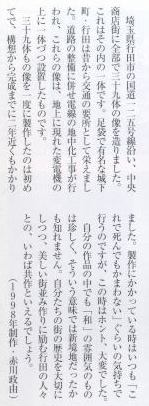 埼玉県行田市の国道一二五号線沿い、中央
商店街に全部で三十九体の像を造りました。
これはその内の一体です。足袋で有名な城下
町・行田は昔から交通の要所として栄えまし
た。道路の整備に併せ電線の地中化工事が行
われ、これらの像は、地上に現れた変電機の
上に一体づつ設置したものです。
三十九体もの像を一度に製作したのは初め
てで、構想から完成までに二年近くもかかり
ました。製作にかかっている時はいつも「こ
れで死んでもかまわない」ぐらいの気持ちで
行うのですが、この時はホント、大変でした。
自分の作品の中でも「和」の雰囲気のもの
は珍しく、そういう意味では新境地だったか
も知れません。自分たちの街の歴史を大切に
しつつ、美しい街並み作りに励む行田の人々
との、いわば共作といえるでしょう。
（1998年制作　赤川政由）